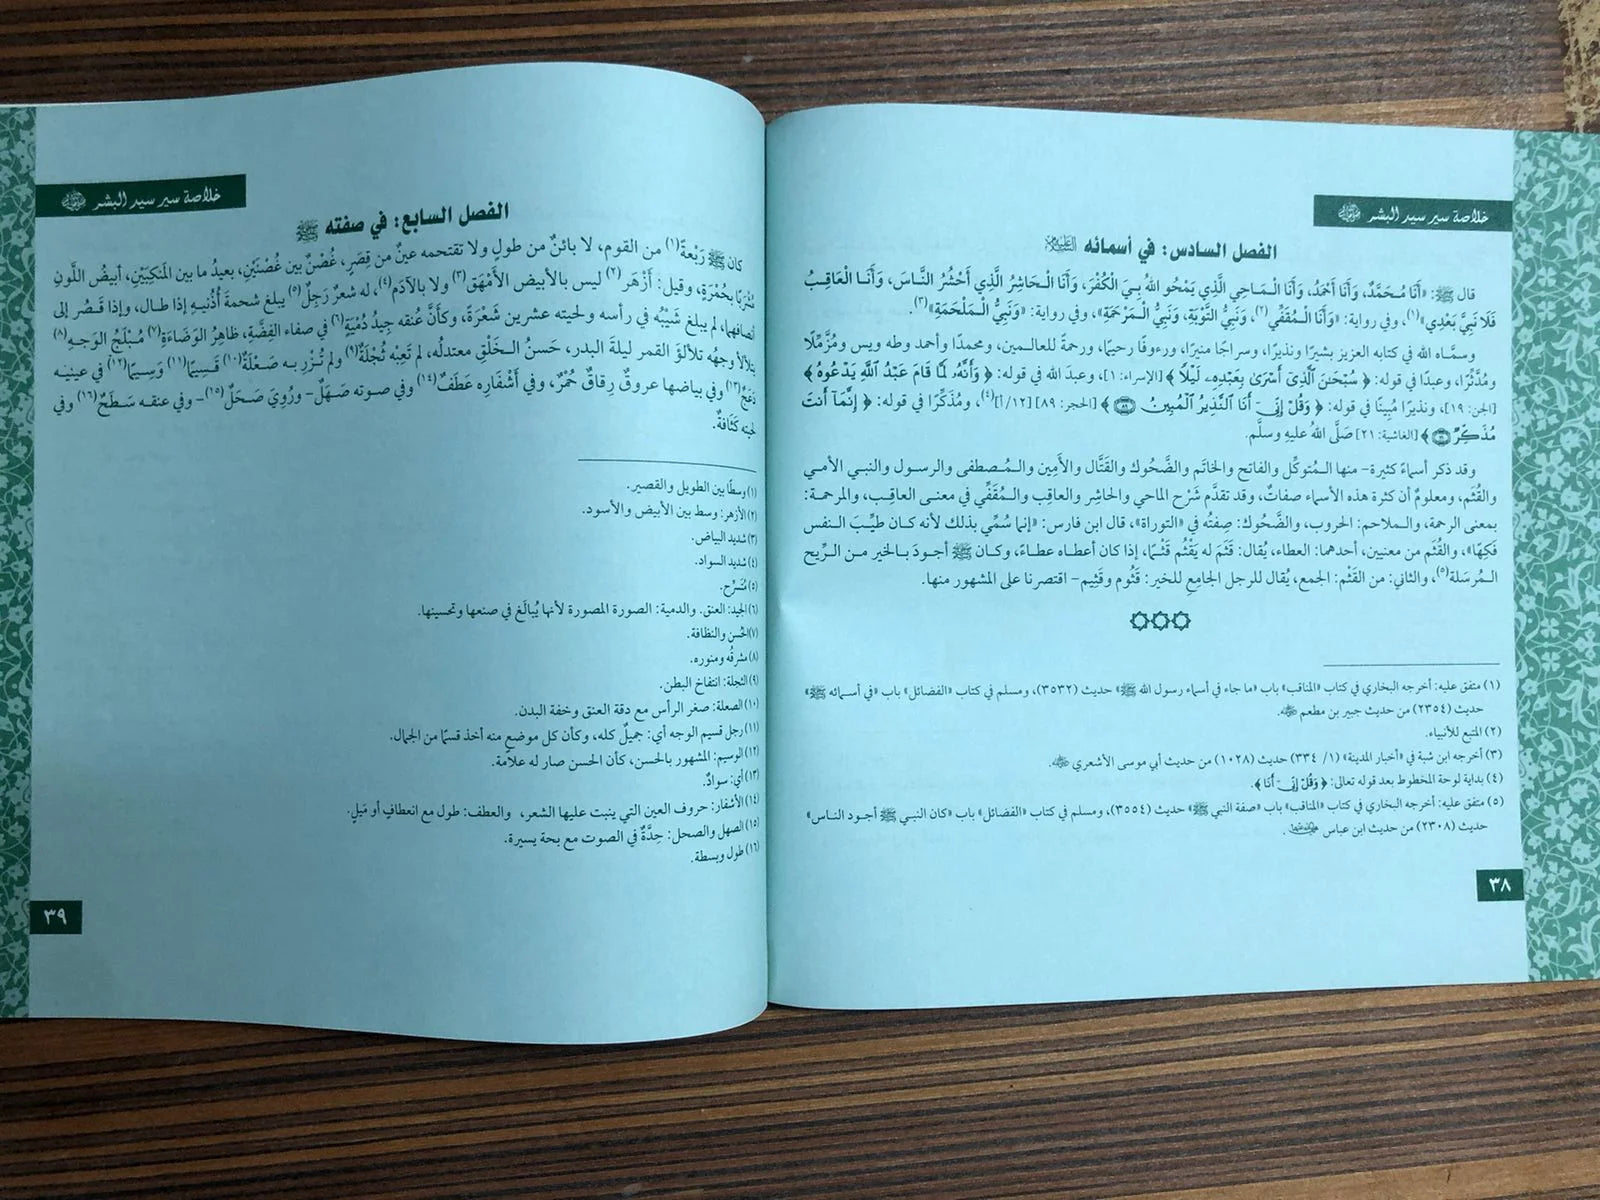 خلاصة سير سيد البشر ﷺ
الفصل السادس: في أسمائه
قال ﷺ: «أَنَا مُحَمَّدٌ، وَأَنَا أَحْمَدُ، وَأَنَا الْـمَاحِي الَّذِي يَمْحُو اللهُ بِـيَ الْكُفْرَ، وَأَنَا الْـحَاشِرُ الَّذِي أَحْشُرُ النَّاسَ، وَأَنَـا الْعَاقِبُ
فَلَا نَبِيَّ بَعْدِي»(١)، وفي رواية: «وَأَنَا الْـمُقَفِّي(٢)، وَنَبِيُّ التَّوْبَةِ، وَنَبِيُّ الْـمَرْحَمَةِ»، وفي رواية: «وَنَبِيُّ الْـمَلْحَمَةِ»(٣).
وسمَّـاه الله في كتابه العزيز بشيرًا ونذيرًا، وسراجًا منيرًا، ورءوفًا رحيمًا، ورحمةً للعالـمين، ومحمدًا وأحمد وطه ويس ومُزَّمِّلًا
ومُدَّثِّرًا، وعبدًا في قوله: ﴿ سُبْحَٰنَ ٱلَّذِىٓ أَسْرَىٰ بِعَبْدِهِۦ لَيْلًا ﴾ [الإسراء: ١]، وعبدَ الله في قوله: ﴿ وَأَنَّهُۥ لَمَّا قَامَ عَبْدُ ٱللَّهِ يَدْعُوهُ ﴾
[الجن: ١٩]، ونذيرًا مُبِينًا في قوله: ﴿ وَقُلْ إِنِّىٓ أَنَا ٱلنَّذِيرُ ٱلْمُبِينُ ٨٩ ﴾ [الحجر: ٨٩] [١٢/أ](٤)، ومُذَكِّرًا في قوله: ﴿ إِنَّمَآ أَنتَ
مُذَكِّرٌ ٢١ ﴾ [الغاشية: ٢١] صَلَّى اللهُ عليهِ وسلَّم.
وقد ذكر أسماءً كثيرة- منها الـمُتوكِّل والفاتح والخاتَم والضَّحُوك والقَتَّال والأَمِين والـمُصطفى والرسـول والنبي الأمي
والقُثَم، ومعلومٌ أن كثرة هذه الأسماء صفاتٌ، وقد تقدَّم شَرْح الماحي والحاشِر والعاقِب والـمُقَفِّي في معنـى العاقِـب، والمرحمـة:
بمعنى الرحمة، والـملاحم: الحروب، والضَّحُوك: صِفتُه في «التوراة»، قال ابن فارس: «إنما سُمِّي بذلك لأنه كـان طيِّـبَ الـنفس
فَكِهًا»، والقُثَم من معنيين، أحدهما: العطاء، يُقال: قَثَمَ له يَقْثُم قَثْـمًا، إذا كان أعطـاه عطـاءً، وكـان ﷺ أجـودَ بـالخير مـن الـرِّيح
الـمُرسَلة(٥)، والثاني: من القَثْم: الجمع، يُقال للرجل الجامِع للخير: قَثُوم وقَثِيم- اقتصرنا على المشهور منها.
(١) متفق عليه: أخرجه البخاري في كتاب «المناقب» باب «ما جاء في أسماء رسول الله ﷺ» حديث (٣٥٣٢)، ومسلم في كتاب «الفضائل» باب «في أسـمائه ﷺ»
حديث (٢٣٥٤) من حديث جبير بن مطعم.
(٢) المتبع للأنبياء.
(٣) أخرجه ابن شبة في «أخبار المدينة» (١/ ٣٣٤) حديث (١٠٢٨) من حديث أبي موسى الأشعري.
(٤) بداية لوحة المخطوط بعد قوله تعالى: ﴿ وَقُلْ إِنِّىٓ أَنَا ﴾.
(٥) متفق عليه: أخرجه البخاري في كتاب «المناقب» باب «صفة النبي ﷺ» حديث (٣٥٥٤)، ومسلم في كتاب «الفضائل» باب «كان النبـي ﷺ أجـود النـاس»
حديث (٢٣٠٨) من حديث ابن عباس.
٣٨
خلاصة سير سيد البشر ﷺ
الفصل السابع: في صفته ﷺ
كان ﷺ رَبْعَةً(١) من القوم، لا بائنٌ من طولٍ ولا تقتحمه عينٌ من قِصَرٍ، غُصْنٌ بين غُصْنَيْنِ، بعيدُ ما بين المَنكِبَيْنِ، أبيضُ اللَّونِ
مُشْرَبًا بحُمْرَةٍ، وقيل: أَزْهَر(٢) ليس بالأبيض الأَمْهَق(٣) ولا بالآدَم(٤)، له شعرٌ رَجِلٌ(٥) يبلغ شحمةَ أُذُنيـهِ إذا طـال، وإذا قَـصُر إلى
أنصافهما، لم يبلغ شَيْبُه في رأسه ولحيته عشرين شَعْرَة، وكأنَّ عُنقه جِيدُ دُمْيَةٍ(٦) في صفاء الفِضَّة، ظاهِرُ الوَضَاءَةِ(٧) مُـبْلَجُ الوَجـهِ(٨)
يتلألأ وجهُه تلألؤَ القمر ليلةَ البدر، حَسَنُ الـخَلْقِ معتدلُه، لم تَعِبْه ثُجْلَةٌ(٩) ولم تُـزْرِ بـه صَـعْلَةٌ(١٠) قَـسِيمًا(١١) وَسِـيمًا(١٢) في عينيـه
دَعَجٌ(١٣) وفي بياضها عروقٌ رِقاقٌ حُمْرٌ، وفي أَشْفَارِه عَطَفٌ(١٤) وفي صـوته صَـهَلٌ- ورُوِيَ صَـحَلٌ(١٥)- وفي عنقـه سَـطَحٌ(١٦) وفي
لحيته كَثَافةٌ.
(١) وسطًا بين الطويل والقصير.
(٢) الأزهر: وسط بين الأبيض والأسود.
(٣) شديد البياض.
(٤) شديد السواد.
(٥) مُسَرَّح.
(٦) الجيد: العنق. والدمية: الصورة المصورة لأنها يُبالَغ في صنعها وتحسينها.
(٧) الحُسن والنظافة.
(٨) مشرقُه ومنوره.
(٩) الثجلة: انتفاخ البطن.
(١٠) الصعلة: صغر الرأس مع دقة العنق وخفة البدن.
(١١) رجل قسيم الوجه أي: جميلٌ كله، وكأن كل موضعٍ منه أخذ قسمًا من الجمال.
(١٢) الوسيم: المشهور بالحسن، كأن الحسن صار له علامة.
(١٣) أي: سوادٌ.
(١٤) الأشفار: حروف العين التي ينبت عليها الشعر، والعطف: طول مع انعطافٍ أو مَيَلٍ.
(١٥) الصهل والصحل: حِدَّةٌ في الصوت مع بحة يسيرة.
(١٦) طول وبسطة.
٣٩